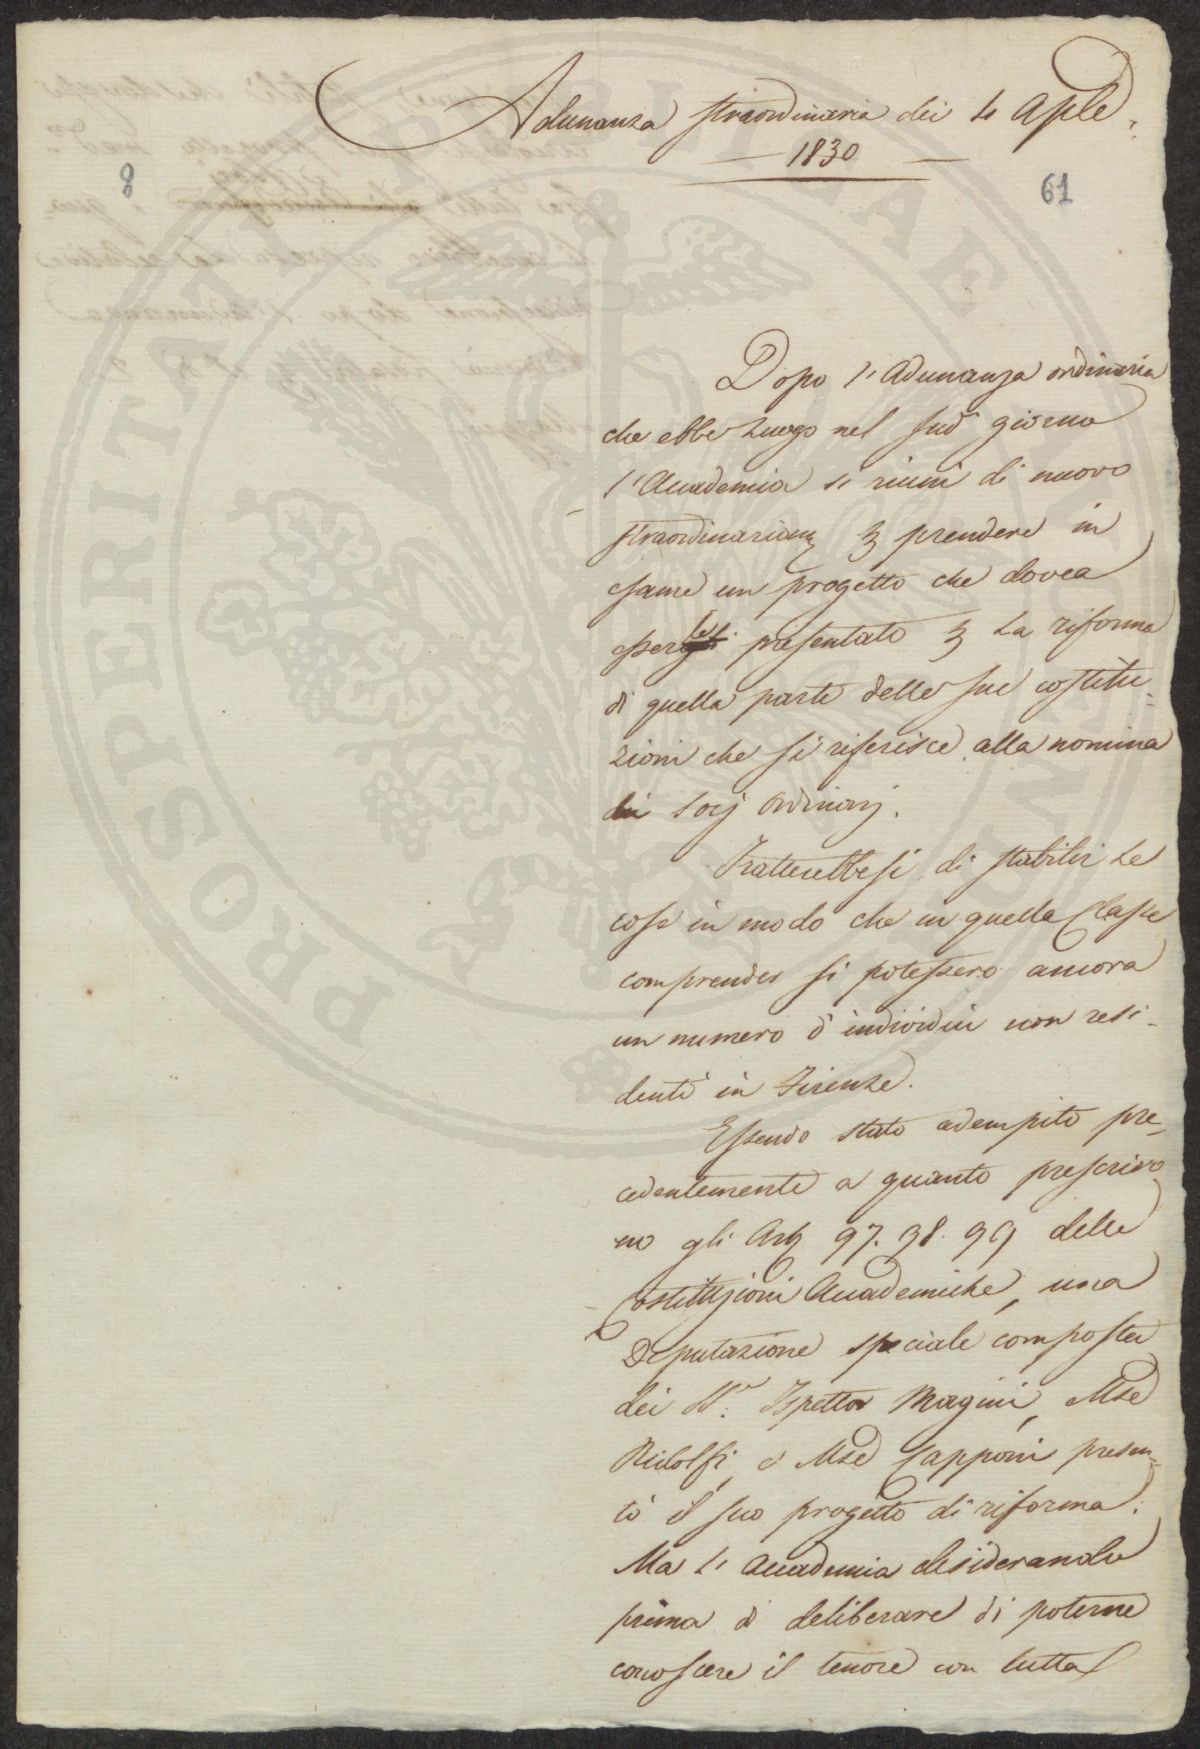 Adunanza straordinaria dei 4 Aple
1830
8
61
Dopo l'Adunanza ordinaria
che ebbe luogo nel sud.o giorno
l'Accademia si riunì di nuovo
straordinariam. per prendere in
esame un progetto che dovea
esserlesi presentato per la riforma
di quella parte delle sue costitu-
zioni che si riferisce alla nomina
dei Socj Ordinarj.
Tratterebbesi di stabilir le
cose in modo che in quella Classe
comprender si potessero ancora
un numero d'individui non resi-
denti in Firenze.
Essendo stato adempito pre-
cedentemente a quanto prescrivo
no gli Art. 97. 98. 99 delle
Costituzioni Accademiche, una
Deputazione speciale composta
dei SS.ri Ispettor Magini, Mse
Ridolfi, e Mse Capponi presen-
tò il suo progetto di riforma.
Ma l'Accademia desiderando
prima di deliberare di poterne
conoscere il tenore con tutta
PROSPERITATI PUBLICAE AUGENDAE